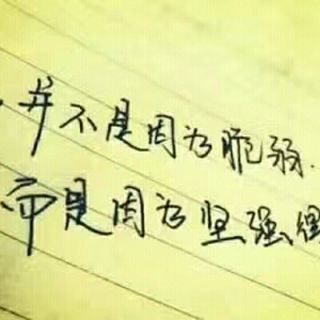 并不是因为脆弱.
而是因为坚强